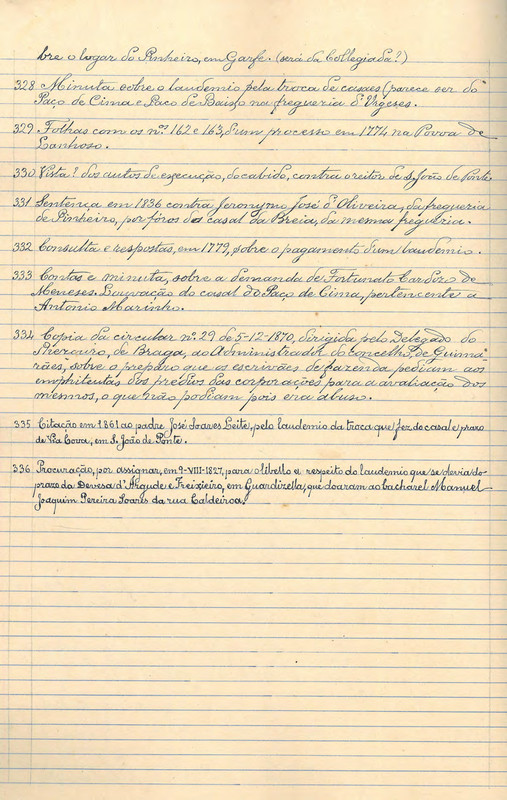 bre o logar do Pinheiro, em Garfe. (será da Collegiada?)
328 Minuta sobre o laudemio pela troca de casaes (parece ser do
Paço de Cima e Paço de Baixo na freguesia d'Urgeses.
329 Folhas com os nos 162 e 163, d'um processo em 1774 na Povoa de
Lanhoso.
330 Vista? dos autos de execução, do cabido, contra o reitor de S. João de Ponte
331 Sentença em 1836 contra Jeronymo José d'Oliveira, da freguesia
de Pinheiro, por fóros do casal da Breia, da mesma freguesia.
332 Consulta e respostas, em 1779, sobre o pagamento d'um laudemio.
333 Contas e minuta, sobre a demanda de Fortunato Cardozo de
Meneses. Louvação do casal do Paço de Cima, pertencente a
Antonio Marinho.
334 Copia da circular nº 29 de 5-12-1870, dirigida pelo Delegado do
Thezouro, de Braga, ao Administrador do concelho, de Guima-
rães, sobre o preparo que os escrivães de fazenda pediam aos
emphiteutas dos predios das corporações para a avaliação dos
mesmos, o que não podiam pois era abuso.
335 Citação em 1861 ao padre José Soares Leite, pelo laudemio da troca que fez do casal e prazo
de Vila Cova, em S. João de Ponte.
336 Procuração, por assignar, em 9-VIII-1827, para o libello a respeito do laudemio que se devia do
prazo da Devesa d'Argude e Freixieiro, em Guardizella, que doaram ao bacharel Manuel
Joaquim Pereira Soares da rua Caldeiroa.